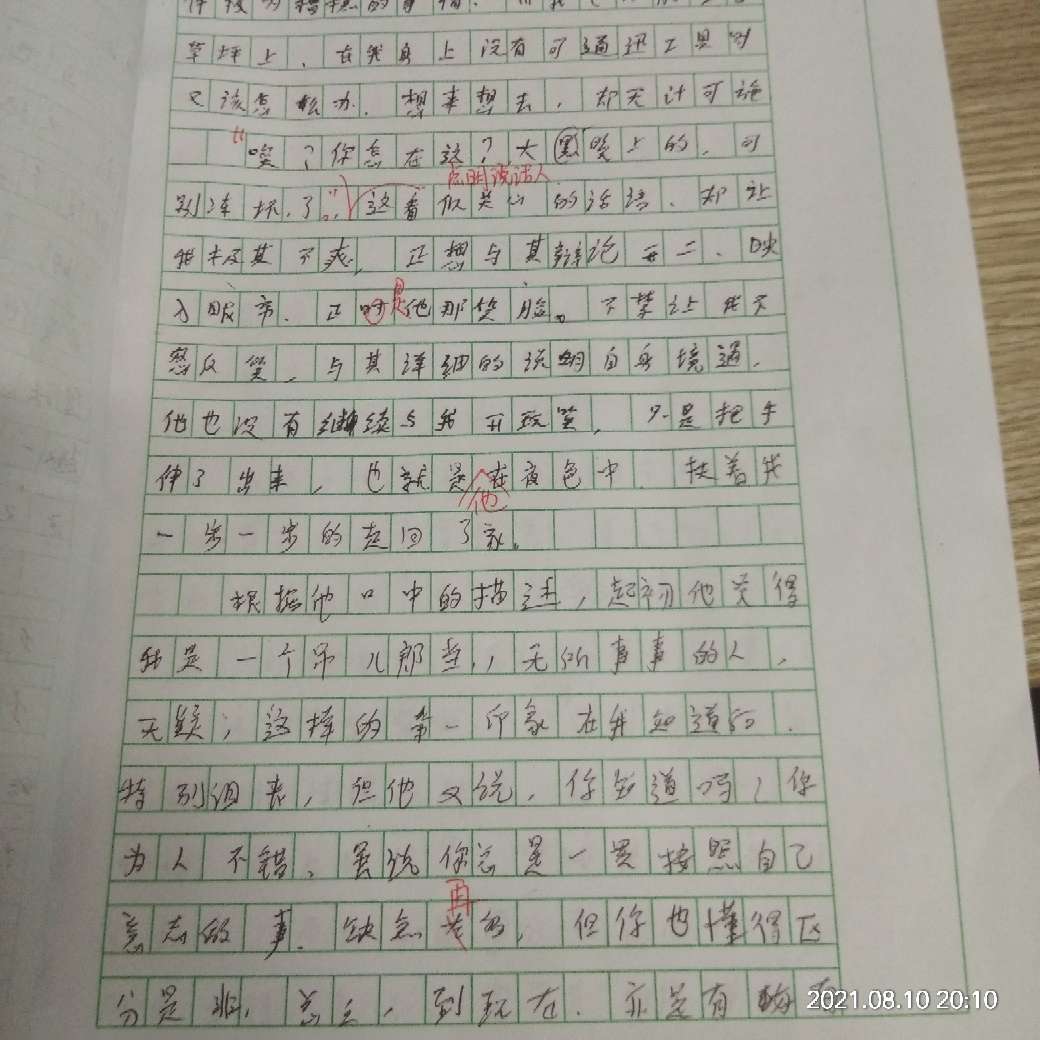 草坪上，在我身上没有可通迅工具时
又该怎么办，想来想去，却无计可施
“唉？你怎在这？大晚上的，可
点明说话人
别冻坏了”，这看似关心的话语，却让
我极其不爽，正想与其辩论一二，映
入眼帘，正是他那笑脸。不禁让我不
怒反笑，与其详细的说明自身境遇，
他也没有继续与我开玩笑，只是把手
伸了出来，也就是他在夜色中，扶着我
一步一步的走回了家。
根据他口中的描述，起初他觉得
我是一个吊儿郎当，无所事事的人，
无疑，这样的第一印象在我知道后，
特别沮丧，但他又说，你知道吗？你
为人不错，虽说你总是一昧按照自己
意志做事，缺点再多，但你也懂得区
分是非，总之，到现在，亦是有
2021.08.10 20:10